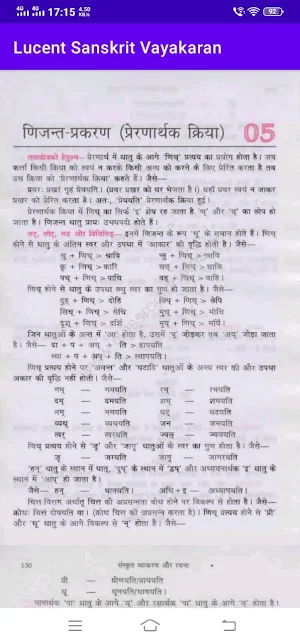 17:15
4.50 KB/S
92
Lucent Sanskrit Vayakaran
णिजन्त-प्रकरण (प्रेरणार्थक क्रिया) 05
तत्प्रयोजको हेतुश्च– प्रेरणार्थ में धातु के आगे 'णिच्' प्रत्यय का प्रयोग होता है। जब
कर्त्ता किसी क्रिया को स्वयं न करके किसी अन्य को करने के लिए प्रेरित करता है तब
उस क्रिया को 'प्रेरणार्थक क्रिया' कहते हैं। जैसे—
प्रवरः प्रखरं गृहं प्रेषयति। (प्रवर प्रखर को घर भेजता है।) यहाँ प्रवर स्वयं न जाकर
प्रखर को प्रेरित करता है। अतः, 'प्रेषयति' प्रेरणार्थक क्रिया हुई।
प्रेरणार्थक क्रिया में णिच् का सिर्फ 'इ' शेष रह जाता 'ण्' और 'च्' का लोप हो
जाता है। णिजन्त धातु प्रायः उभयपदी होते हैं।
लट्, लोट्, लङ् और विधिलिङ्– इनमें णिजन्त के रूप 'भू' के समान होते हैं। णिच्
होने से धातु के अंतिम स्वर और उपधा में 'आकार' की वृद्धि होती है। जैसे—
कृ + णिच् > कारि
पच् + णिच् > पाचि
णिच् होने से धातु के उपधा लघु स्वर का गुण हो जाता है। जैसे—
दुह् + णिच् > दोहि
सिच् + णिच् > सेचि मुच् + णिच् > मोचि
दृश् + णिच् > दर्शि
जिन धातुओं के अन्त में 'आ' होता है, उसमें 'पृ' जोड़कर तब 'अय्' जोड़ा जाता
है। जैसे— दा + प + अय् + ति > दापयति
स्था + प + अय् + ति > स्थापयति।
णिच् प्रत्यय होने पर 'अमन्त' और 'घटादि' धातुओं के अन्त्य स्वर की और उपधा
अकार की वृद्धि नहीं होती। जैसे—
गम् — गमयति रम् — रमयति
दम् — दमयति शम् — शमयति
नम् — नमयति घट् — घटयति
व्यथ् — व्यथयति जन — जनयति
त्वर् — त्वरयति ज्वल् — ज्वलयति
णिच् प्रत्यय होने से 'जृ' और 'जागृ' धातुओं के स्वर का गुण होता है। जैसे—
जृ — जरयति जागृ — जागरयति
'हन्' धातु के स्थान में घात्, 'दुष्' के स्थान में 'दूष्' और अध्ययनार्थक 'इ' धातु के
स्थान में 'आप्' हो जाता है।
जैसे— हन् — घातयति। अधि + इ — अध्यापयति।
चित्त विराग अर्थात् चित्त की अप्रसन्नता बोध होने पर विकल्प से होता है। जैसे—
क्रोधः चित्तं दोषयति वा। (क्रोध चित्त को अप्रसन्न करता है)। णिच् प्रत्यय होने से 'प्री'
और 'धू' धातु के आगे विकल्प से 'न्' होता है। जैसे—
130 संस्कृत व्याकरण और रचना
प्री — प्रीणयति/प्राययति
धू — धूनयति/धावयति।
पानार्थक 'पा' धातु के आगे 'य्' और रक्षार्थक 'पा' धातु के आगे 'ल्' होता है।